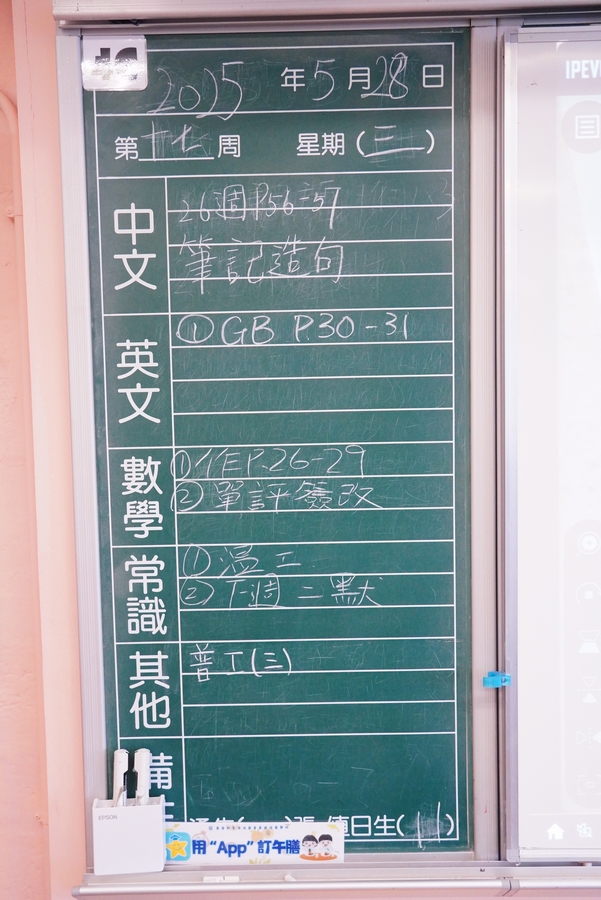 2025年5月28日
第十七周 星期(三)
中文
26週P.56-57
筆記造句
英文
① GB P.30-31
數學
①作P.26-29
②單評簽改
常識
①溫工
②下週二默
其他
普工(三)
備
值日生(11)
EPSON
用"App"訂午膳
IPEV